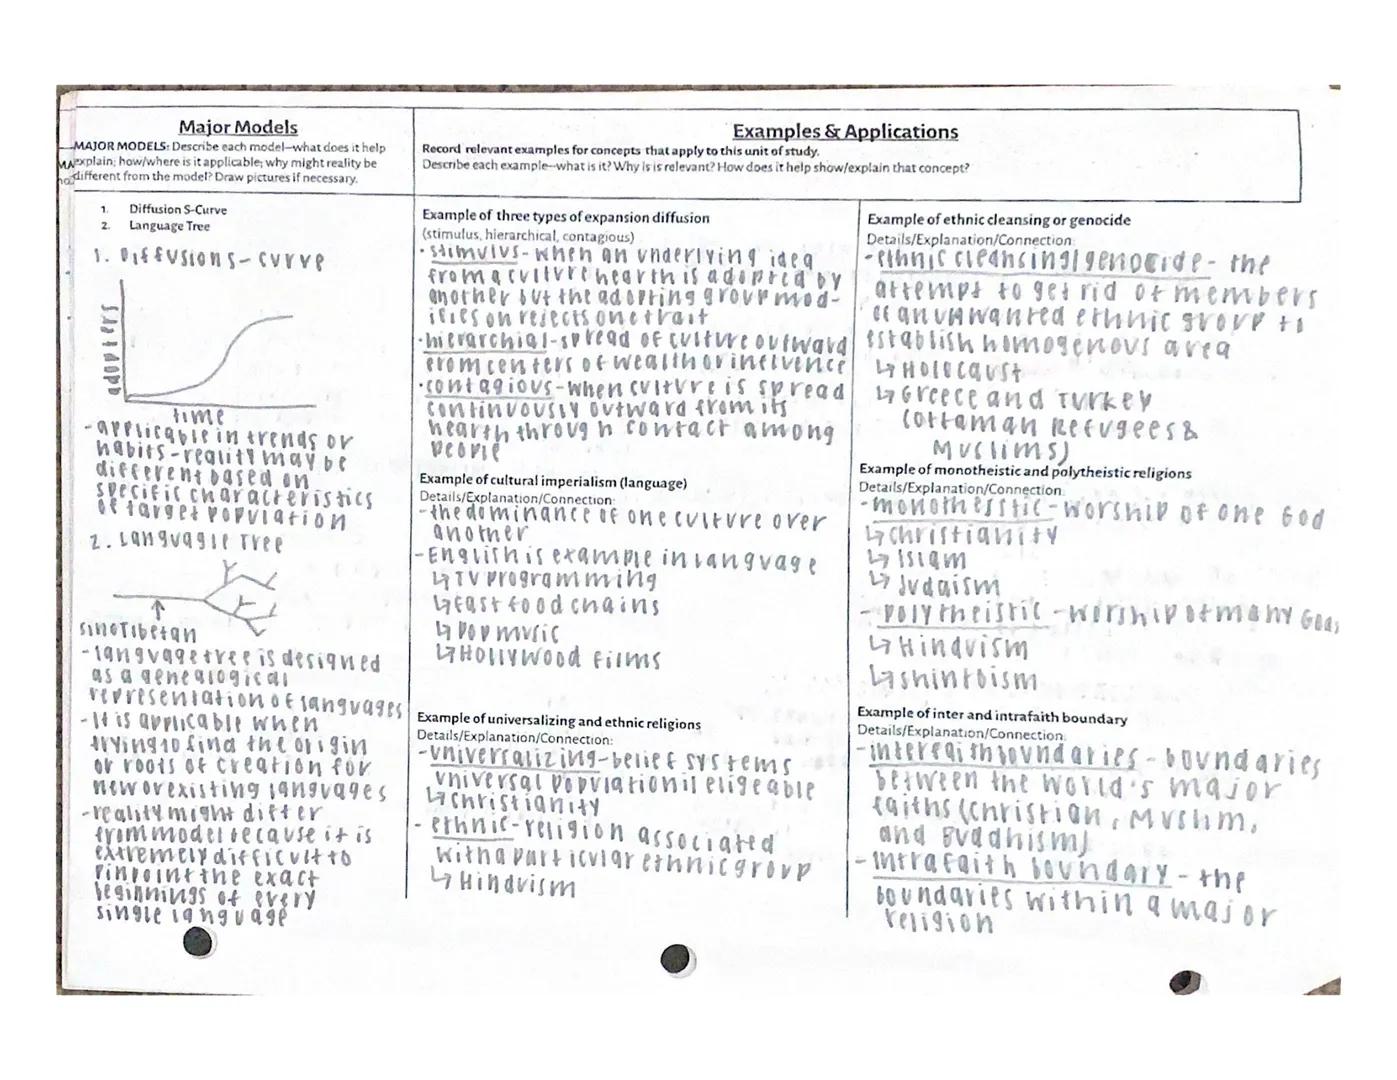 Major Models
MAJOR MODELS: Describe each model—what does it help
explain; how/where is it applicable; why might reality be
different from the model? Draw pictures if necessary.
1. Diffusion S-Curve
2. Language Tree
1. Diffusions-curve
adopters
time
-applicable in trends or
habits-reality may be
different based on
specific characteristics
of target population
2. Language Tree
sinoTibetan
-language tree is designed
as a genealogical
representation of languages
-It is applicable when
trying to find the origin
or roots of creation for
new or existing languages
-reality might differ
from model because it is
extremely difficult to
pinpoint the exact
beginnings of every
single language
Examples & Applications
Record relevant examples for concepts that apply to this unit of study.
Describe each example—what is it? Why is is relevant? How does it help show/explain that concept?
Example of three types of expansion diffusion
(stimulus, hierarchical, contagious)
·stimulus- when an underlying idea
from a culture hearth is adopted by
another but the adopting group mod-
ifies on rejects one trait
·hierarchial-spread of culture outward
from centers of wealth or influence
·contagious-when culture is spread
continuously outward from its
hearth through contact among
people
Example of cultural imperialism (language)
Details/Explanation/Connection:
-the dominance of one culture over
another
-English is example in language
↳TV programming
↳Fast food chains
↳Pop music
↳Hollywood films
Example of universalizing and ethnic religions
Details/Explanation/Connection:
-universalizing-belief systems
universal population is eligeable
↳Christianity
-ethnic-religion associated
with a particular ethnic group
↳Hinduism
Example of ethnic cleansing or genocide
Details/Explanation/Connection:
-ethnic cleansing/genocide- the
attempt to get rid of members
of an unwanted ethnic group to
establish homogenous area
↳Holocaust
↳Greece and Turkey
(ottaman Refugees &
Muslims)
Example of monotheistic and polytheistic religions
Details/Explanation/Connection:
-monothesstic-worship of one God
↳christianity
↳Islam
↳Judaism
-polytheistic-worship of many Gods
↳Hinduism
↳shintoism
Example of inter and intrafaith boundary
Details/Explanation/Connection:
-interfaith boundaries-boundaries
between the world's major
faiths (christian, Muslim,
and Buddhism)
-intrafaith boundary-the
boundaries within a major
religion